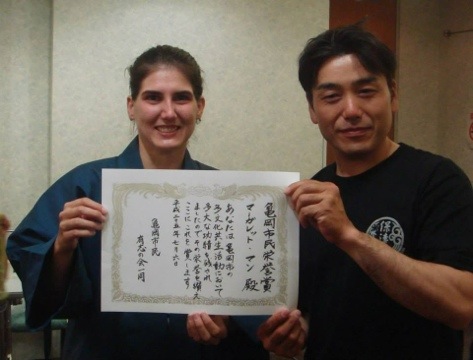 亀岡市民栄誉賞
マーガレット・マン 殿
あなたは亀岡市の
多文化共生活動において
多大な功績を残され
ましたので、その栄誉を讃え
ここにこれを賞します
平成二十五年七月六日
亀岡市民
有志の会一同